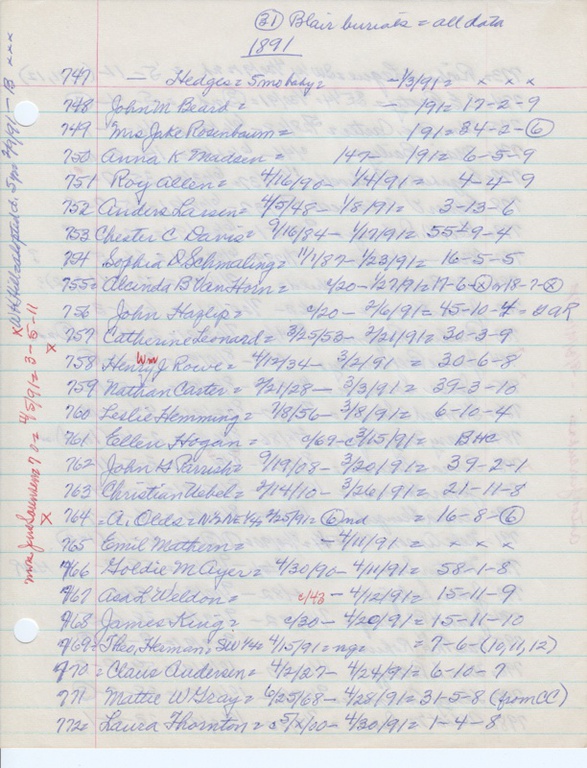 (31) Blair burials = all data
1891
747 — Hedges = 5 mo baby = - 1/3/91 = x x x
748 John M Beard = - 191 = 17-2-9
749 Mrs Jake Rosenbaum = 191 = 34-2-(6)
750 Anna K Madsen = 147- 191 = 6-5-9
751 Roy Allen = 4/16/90 - 1/4/91 = 4-4-9
752 Anders Larsen = 4/5/48 - 1/8/91 = 3-13-6
753 Chester C Davis = 9/16/84 - 1/17/91 = 55-9-4
754 Sophia D Schmaling = 11/1/87 - 1/23/91 = 16-5-5
755 = Alcinda B VanHorn = c/20 - 1/27/91 = 17-6-(x) or 18-7-(x)
756 John Hazlip = c/20 - 2/6/91 = 45-10-4 = GAR
757 Catherine Leonard = 3/25/53 - 2/21/91 = 30-3-9
758 Henry Wm J Rowe = 4/12/34 - 3/2/91 = 30-6-8
759 Nathan Carter = 2/21/28 - 3/3/91 = 39-3-10
760 Leslie Hemming = 7/8/56 - 3/8/91 = 6-10-4
761 Ellen Hogan = c/69 - c3/15/91 = BHC
762 John H Parrish = 9/19/08 - 3/20/91 = 39-2-1
763 Christian Uebel = 2/14/10 - 3/26/91 = 21-11-8
764 = A. Olds = N2N2 1/4 2/25/91 = (6) nd = 16-8-(6)
765 Emil Mathern = - 4/11/91 = x x x
766 Goldie M Ayer = 4/30/90 - 4/11/91 = 58-1-8
767 Asa L Weldon = c/43 - 4/12/91 = 15-11-9
768 James King = c/30 - 4/20/91 = 15-11-10
769 = Theo, Herman = SW 1/4 = 4/15/91 = ng = = 7-6-(10,11,12)
770 = Claus Andersen = 4/2/27 - 4/24/91 = 6-10-7
771 Mattie W Gray = 6/25/68 - 4/28/91 = 31-5-8 (from CC)
772 = Laura Thornton = c 5/x/00 - 4/30/91 = 1-4-8
Mrs Jens Sorensen 70 = 4/5/91 = 3-5-11
x
x